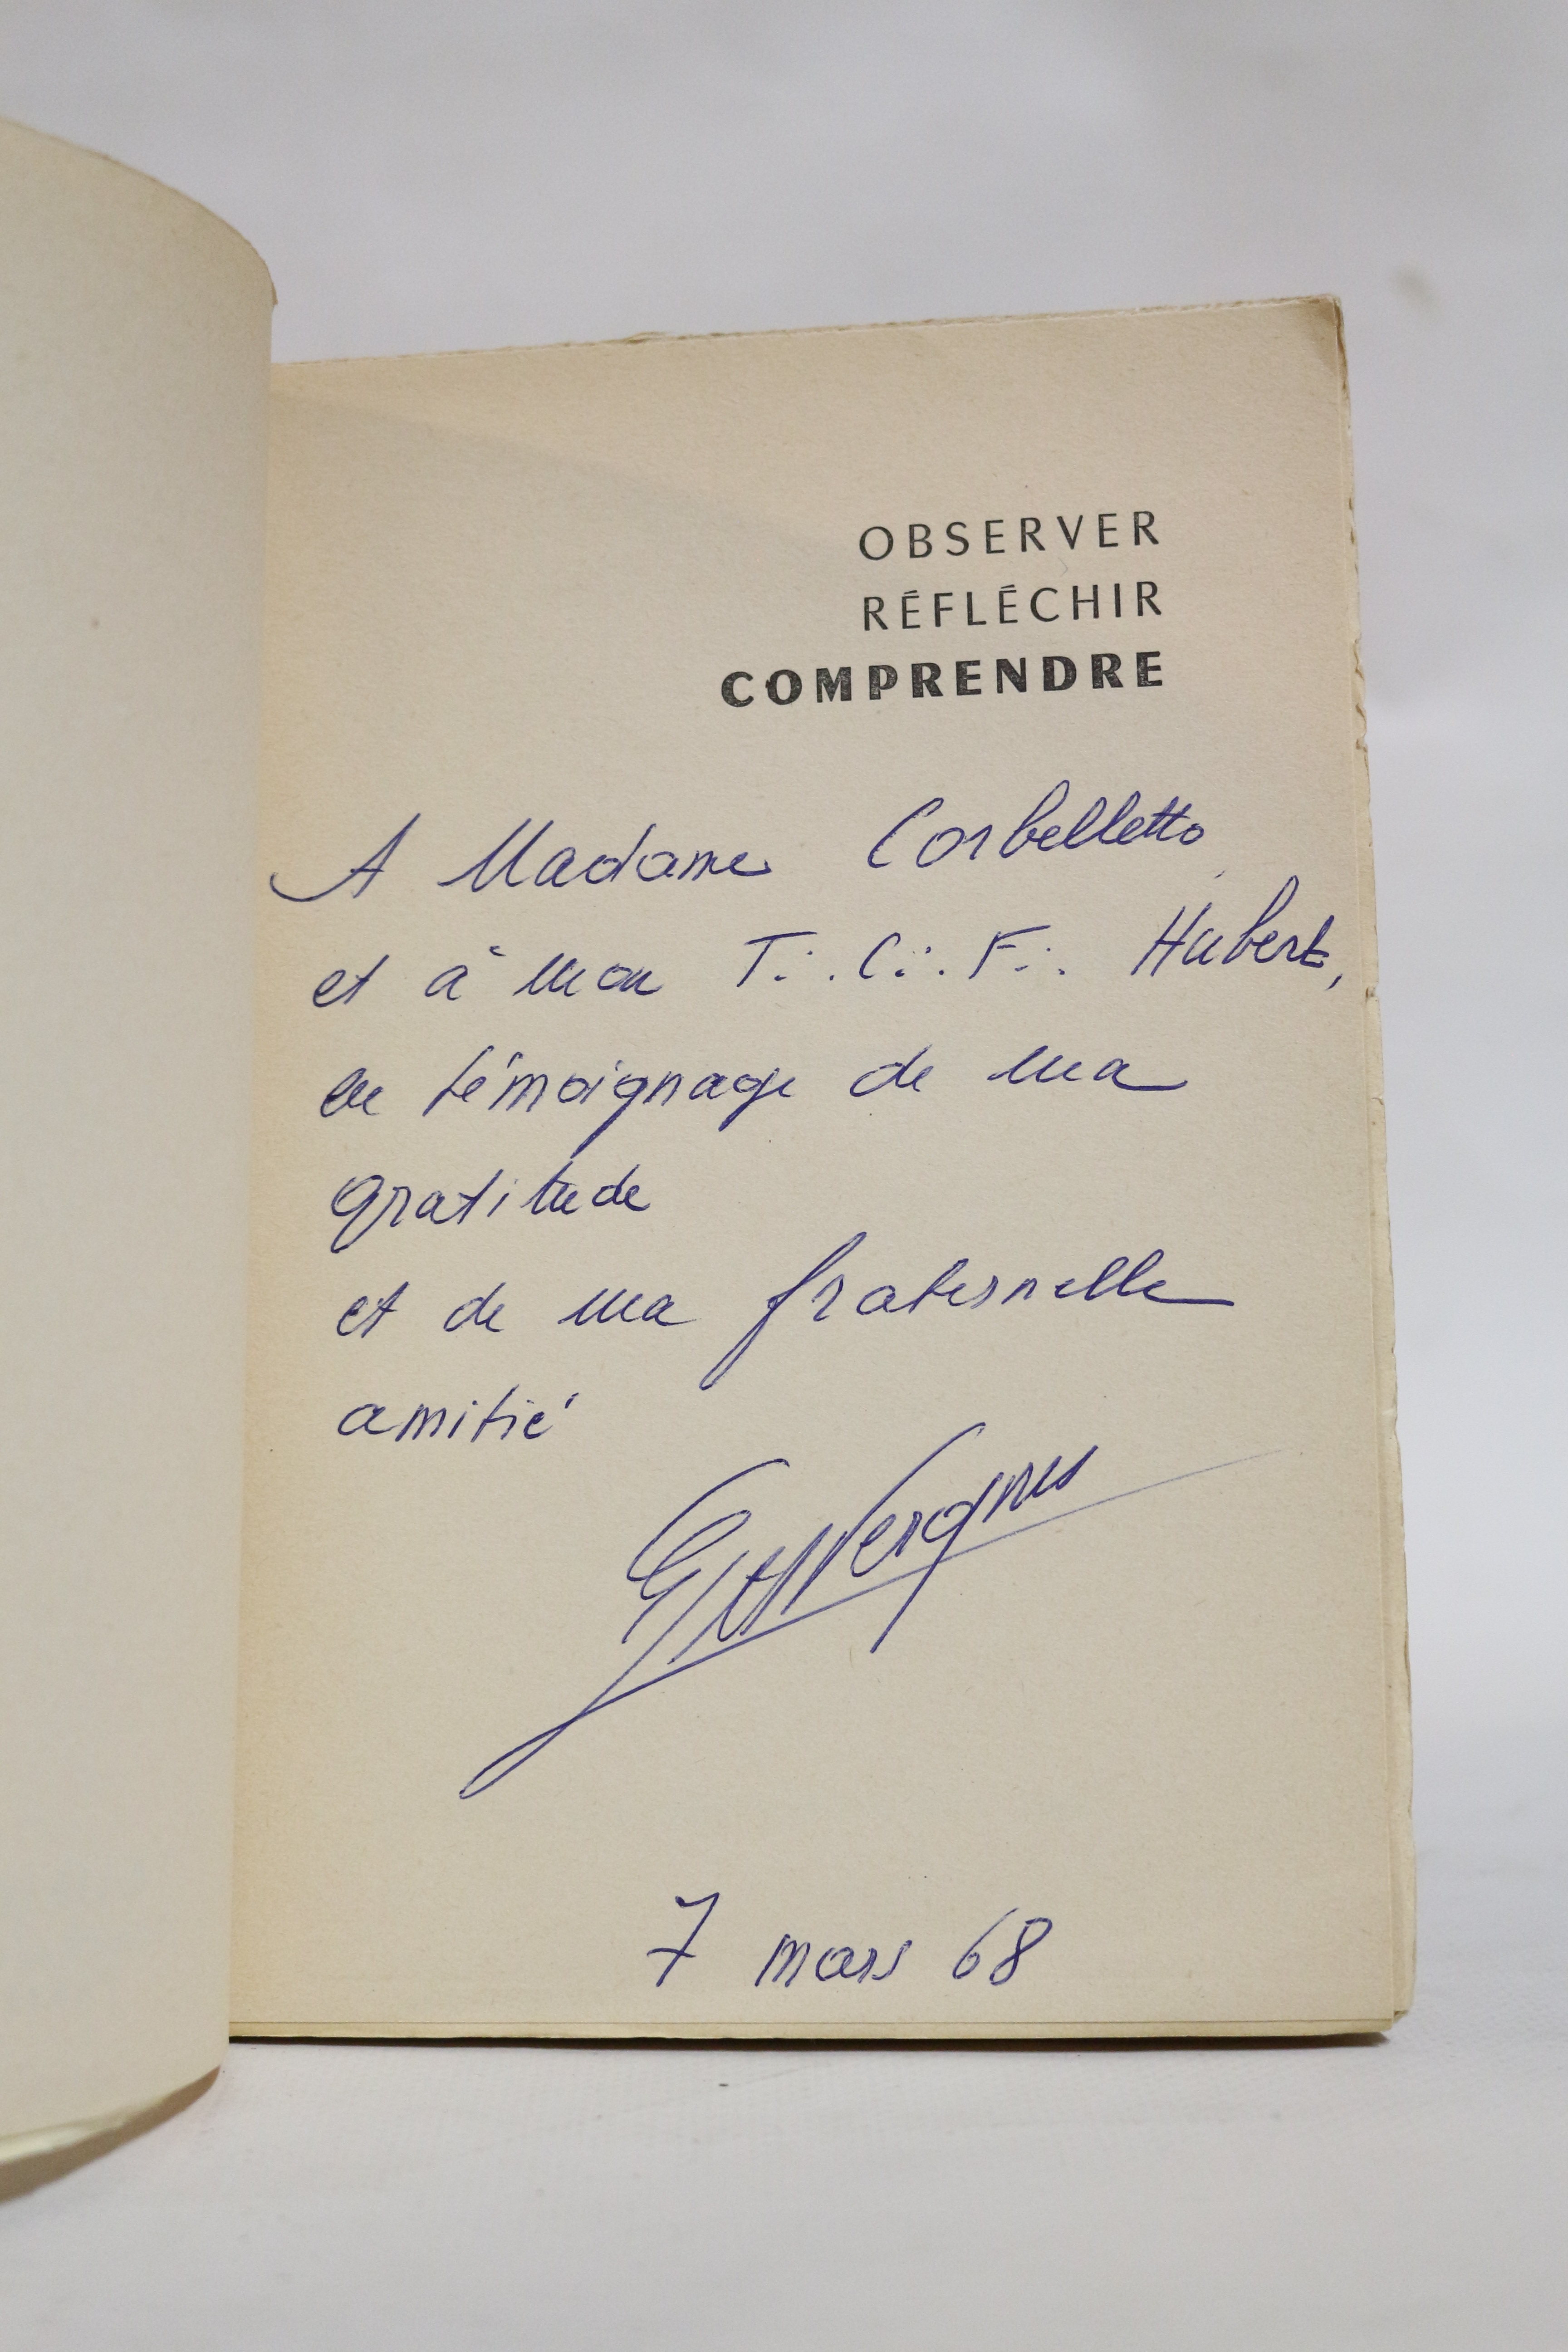 OBSERVER
RÉFLÉCHIR
COMPRENDRE
A Madame Corbelletto
et à mon T∴C∴F∴ Hubert,
en témoignage de ma
gratitude
et de ma fraternelle
amitié
7 mars 68